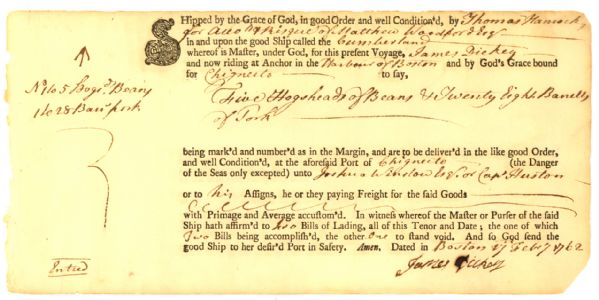 SHipped by the Grace of God, in good Order and well Condition'd, by Thomas Hancock
for Acco & Risque of Matthew Woodford Esqr
in and upon the good Ship called the Cumberland
whereof is Master, under God, for this present Voyage, James Dickey
and now riding at Anchor in the Harbour of Boston and by God's Grace bound
for Chignecto to say,
Five Hogsheads of Beans & Twenty Eight Barrells
of Pork
No 1 to 5 Hogsd. Beans
1 to 28 Barr Pork
being mark'd and number'd as in the Margin, and are to be deliver'd in the like good Order,
and well Condition'd, at the aforesaid Port of Chignecto (the Danger
of the Seas only excepted) unto Joshua Winslow Esqr or Capt Huston
or to his Assigns, he or they paying Freight for the said Goods
with Primage and Average accustom'd. In witness whereof the Master or Purser of the said
Ship hath affirm'd to two Bills of Lading, all of this Tenor and Date; the one of which
Two Bills being accomplish'd, the other One to stand void. And so God send the
good Ship to her desir'd Port in Safety. Amen. Dated in Boston 17 Feby 1762
James Dickey
Entred